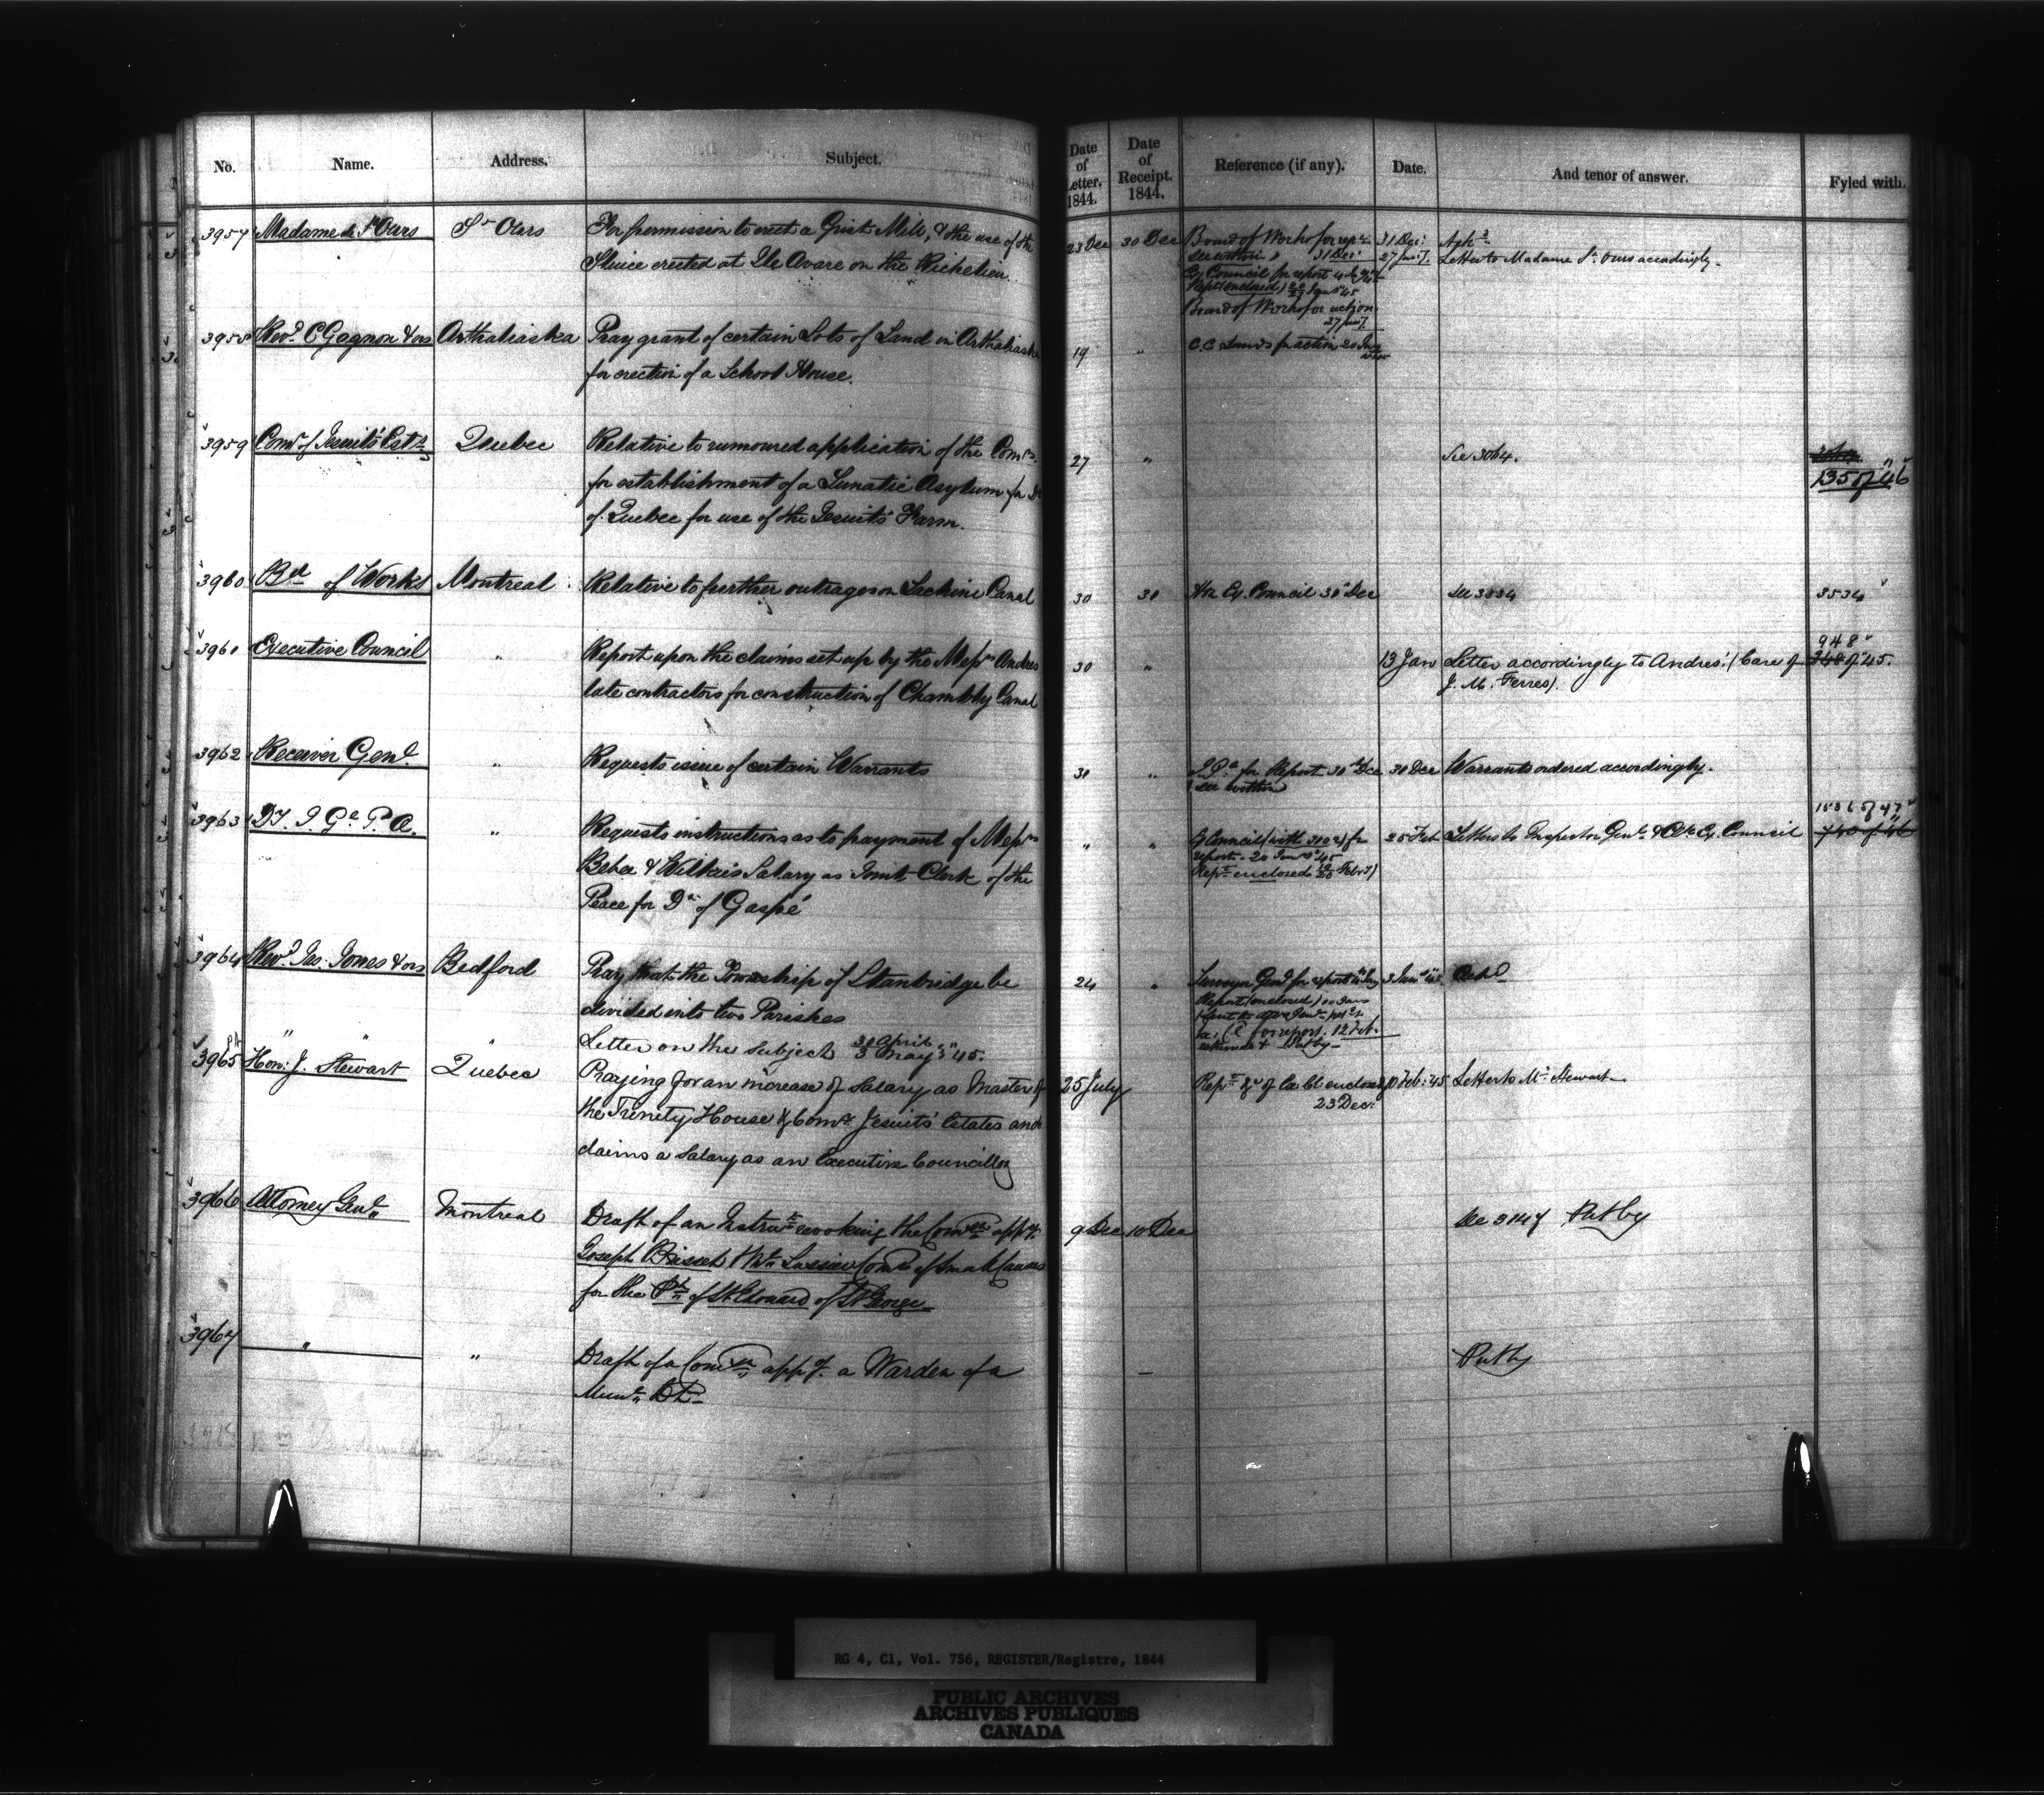 No. Name. Address. Subject. Date of Letter. 1844. Date of Receipt. 1844. Reference (if any). Date. And tenor of answer. Fyled with.
3957 Madame de St Ours St Ours For permission to erect a Grist Mill, & the use of the 23 Dec 30 Dec Board of Works for rept 31 Dec:
Sluice erected at Ile Avare on the Richelieu. see within 31 Dec: 27 Letter to Madame St. Ours accordingly.
Ex Council for report
Rept (enclosed) Jany 45
Board of Works for action
3958 Revd. C Gagnon & ors Arthabaska Pray grant of certain Lots of Land in Arthabaska 19 " C. C. Lands for action 20 Jany
for erection of a School House.
3959 Comr of Jesuits' Ests Quebec Relative to rumoured application of the Comrs. 27 " See 3064.
for establishment of a Lunatic Asylum for
of Quebec for use of the Jesuits' Farm. 135 of "46
3960 Bd of Works Montreal Relative to further outrages on Lachine Canal 30 30 Ex. Council 30 Dec see 3534 3534
3961 Executive Council " Report upon the claims set up by the Messrs Andres 30 " 13 Jan Letter accordingly to Andres: (Care of 948
late contractors for construction of Chambly Canal J. M. Ferres). 348 of "45.
3962 Receiver Genl. " Requests issue of certain Warrants 30 " for Report 30 Dec 30 Dec Warrants ordered accordingly.
see within
3963 Dy. I. Gl. P. A. " Requests instructions as to payment of Messrs " " Ex Council (with 3102) for 25 Feb Letters to Inspector Genl. & Clk Ex. Council 1586 of 47
Bebee & Wilkies Salary as Joint Clerk of the report - 20 Jany "45 740 of 46
Peace for Dt of Gaspé Rept enclosed Feby)
3964 Revd. Jas. Jones & ors Bedford Pray that the Township of Stanbridge be 24 " Surveyor Genl for report 3 Jany "45
divided into two Parishes Report (enclosed)
" " " Letter on the subject 30 April 3 May "45. for report. 12 Feb.
3965 Hon: J. Stewart Quebec Praying for an increase of Salary as Master of 25 July Rept of Ex Cl enclosed 10 Feb: 45 Letter to Mr. Stewart
the Trinity House & Comr. Jesuits' Estates and 23 Dec:
claims a salary as an Executive Councillor
3966 Attorney Genl. Montreal Draft of an Instrut revoking the Comon appg. 9 Dec 10 Dec see 3147 Put by
Joseph Brisset & Comrs of Small Causes
for the Ph of St. Edouard of St. George
3967 " " Draft of a Comon appg. a Warden of a — Put by
Munl. Dt.
RG 4, C1, Vol. 756, REGISTER/Registre, 1844
PUBLIC ARCHIVES
ARCHIVES PUBLIQUES
CANADA